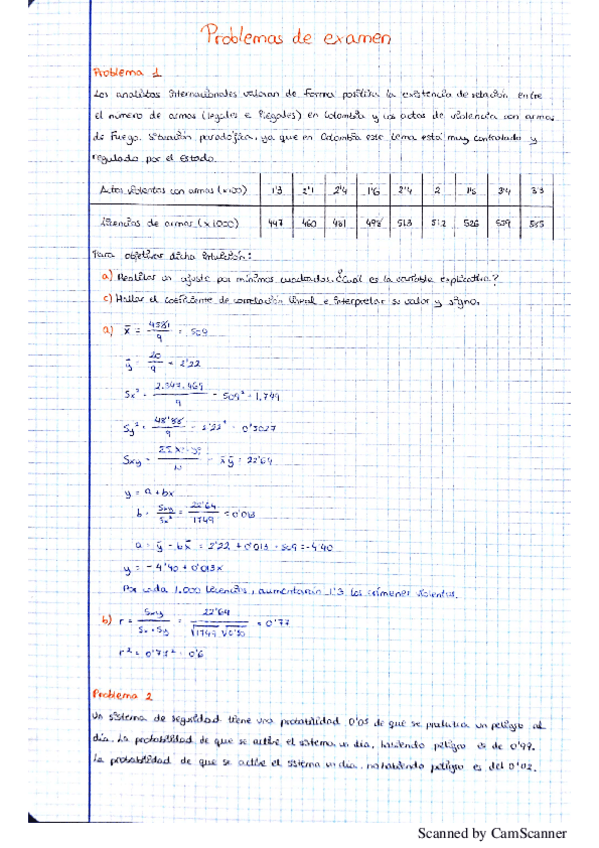 Problemas de examen
Problema 1
Los analistas internacionales valoran de forma positiva la existencia de relación entre
el número de armas (legales e ilegales) en Colombia y los actos de violencia con armas
de fuego. Situación paradójica, ya que en Colombia este tema está muy controlado y
regulado por el estado.
Actos violentos con armas (x100) 1'3 2'1 2'4 1'6 2'4 2 1'5 3'4 3'3
Licencias de armas (x1000) 447 460 481 498 513 512 526 559 585
Para objetivar dicha intuición:
a) Realizar un ajuste por mínimos cuadrados. ¿Cuál es la variable explicativa?
c) Hallar el coeficiente de correlación lineal e interpretar su valor y signo.
a) x̄ = 4581/9 = 509
ȳ = 20/9 = 2'22
Sx² = 2.347.469/9 - 509² = 1.749
Sy² = 48'88/9 - 2'22² = 0'3027
Sxy = - x̄ȳ = 22'64
y = a + bx
b = Sxy/Sx² = 22'64/1749 = 0'013
a = ȳ - bx̄ = 2'22 + 0'013 · 509 = -4'40
y = -4'40 + 0'013x
Por cada 1.000 licencias, aumentarán 1'3 los crímenes violentos.
b) r = Sxy/Sx·Sy = 22'64/√1749 √0'50 = 0'77
r² = 0'77² = 0'6
Problema 2
Un sistema de seguridad tiene una probabilidad 0'05 de que se produzca un peligro al
día. La probabilidad de que se active el sistema un día, habiendo peligro es de 0'99.
La probabilidad de que se active el sistema un día, no habiendo peligro es del 0'02.
Scanned by CamScanner